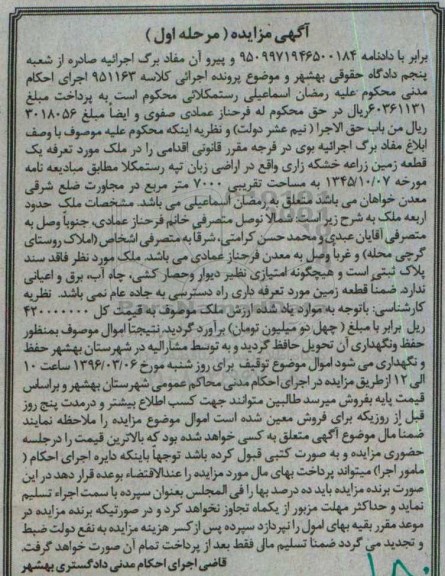 آگهی مزایده ( مرحله اول )
برابر با دادنامه ۹۵۰۹۹۷۱۹۴۶۵۰۰۱۸۴ و پیرو آن مفاد برگ اجرائیه صادره از شعبه
پنجم دادگاه حقوقی بهشهر و موضوع پرونده اجرائی کلاسه ۹۵۱۱۶۳ اجرای احکام
مدنی محکوم علیه رمضان اسماعیلی رستمکلائی محکوم است به پرداخت مبلغ
۶۰۳۶۱۱۳۱ریال در حق محکوم له فرحناز عمادی صفوی و ایضاً مبلغ ۳۰۱۸۰۵۶
ریال من باب حق الاجرا ( نیم عشر دولت) و نظریه اینکه محکوم علیه موصوف با وصف
ابلاغ مفاد برگ اجرائیه بوی در فرجه مقرر قانونی اقدامی را در ملک مورد تعرفه یک
قطعه زمین زراعه خشکه زاری واقع در اراضی زبان تپه رستمکلا مطابق مبایعه نامه
مورخه ۱۳۴۵/۱۰/۰۷ به مساحت تقریبی ۷۰۰۰ متر مربع در مجاورت ضلع شرقی
معدن خواهان می باشد متعلق به رمضان اسماعیلی می باشد. مشخصات ملک حدود
اربعه ملک به شرح زیر است شمالا نوصل متصرفی خانم فرحناز عمادی، جنوباً وصل به
متصرفی آقایان عبدی و محمد حسن کرامتی، شرقا به متصرفی اشخاص (املاک روستای
گرجی محله) و غربا وصل به معدن فرحناز عمادی می باشد. ملک مورد نظر فاقد سند
پلاک ثبتی است و هیچگونه امتیازی نظیر دیوار وحصار کشی، چاه آب، برق و اعیانی
ندارد. ضمناً قطعه زمین مورد تعرفه داری راه دسترسی به جاده عام نمی باشد. نظریه
کارشناسی: باتوجه به موارد یاد شده ارزش ملک موصوف به قیمت کل ۴۲۰۰۰۰۰۰۰
ریل برابر با مبلغ ( چهل دو میلیون تومان) برآورد گردید. نتیجتاً اموال موصوف بمنظور
حفظ ونگهداری آن تحویل حافظ گردید و به توسط مشارالیه در شهرستان بهشهر حفظ
و نگهداری می شود اموال موضوع توقیف برای روز شنبه مورخ ۱۳۹۶/۰۳/۰۶ ساعت ۱۰
الی ۱۲ از طریق مزایده در اجرای احکام مدنی محاکم عمومی شهرستان بهشهر و براساس
قیمت پایه بفروش میرسد طالبین متوانند جهت کسب اطلاع بیشتر و درمدت پنج روز
قبل از روزیکه برای فروش معین شده است اموال موضوع مزایده را ملاحظه نمایند
ضمناً مال موضوع آگهی متعلق به کسی خواهد شده بود که بالاترین قیمت را درجلسه
حضوری مزایده و به صورت کتبی قبول کرده باشد توجهاً باینکه دایره اجرای احکام (
مامور اجرا) میتواند پرداخت بهای مال مورد مزایده را عندالاقتضاء بوعده قرار دهد در این
صورت برنده مزایده باید ده درصد بها را فی المجلس بعنوان سپرده با سمت اجراء تسلیم
نماید و حداکثر مهلت مزبور از یکماه تجاوز نخواهد کرد و در صورتیکه برنده مزایده در
موعد مقرر بقیه بهای امول را نپردازد سپرده پس از کسر هزینه مزایده به نفع دولت ضبط
و تجدید می گردد ضمناً تسلیم مالی فقط بعد از پرداخت تمام آن صورت خواهد گرفت.
قاضی اجرای احکام مدنی دادگستری بهشهر